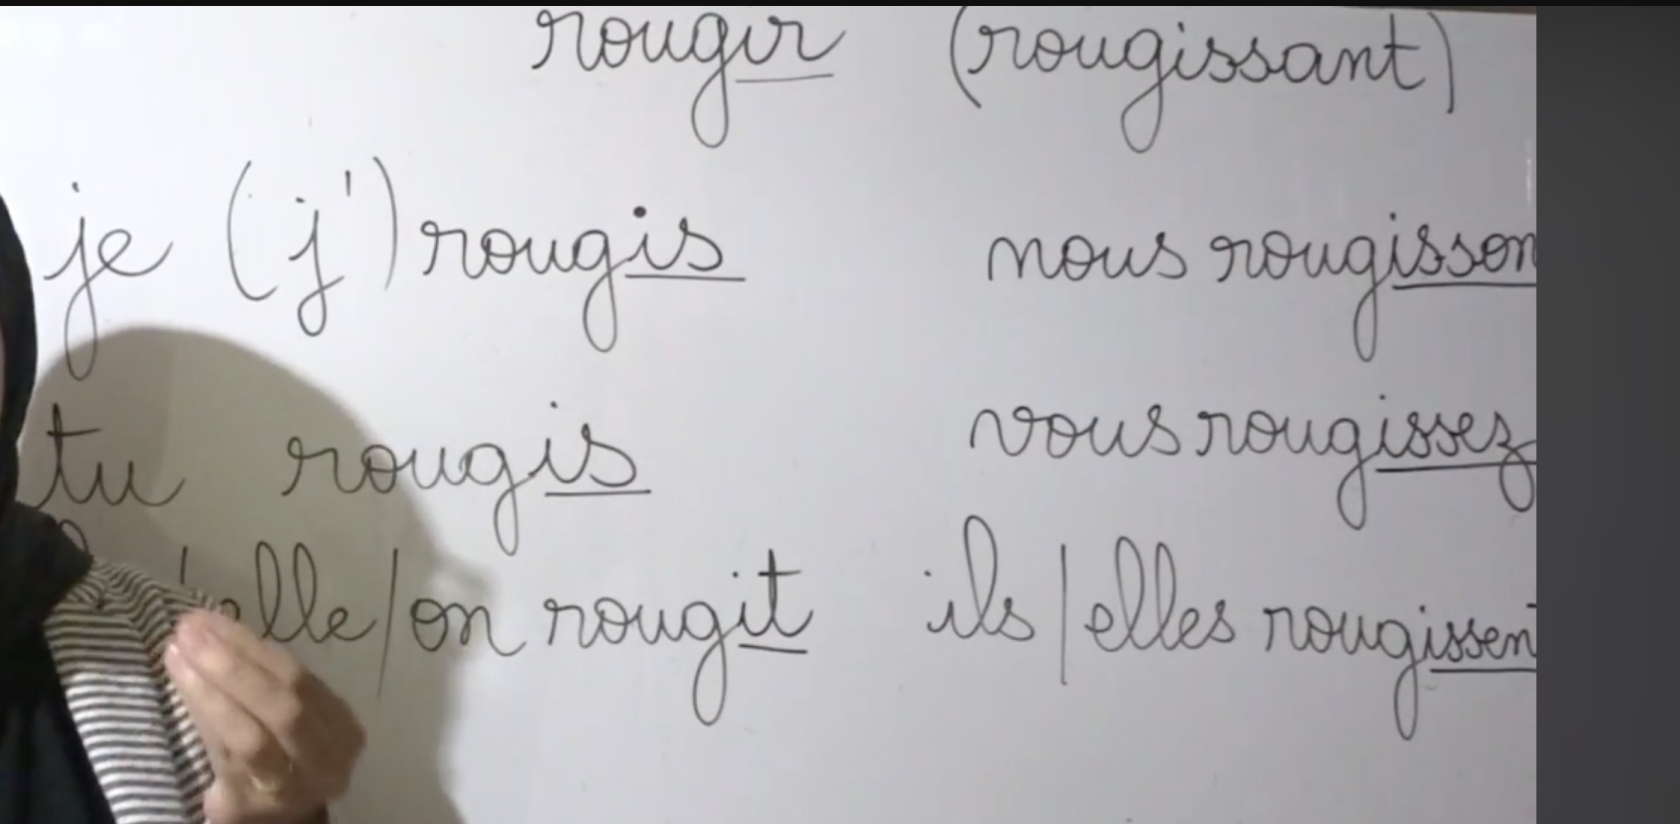 rougir (rougissant)
je (j') rougis nous rougisson
tu rougis vous rougissez
elle/on rougit ils/elles rougissen